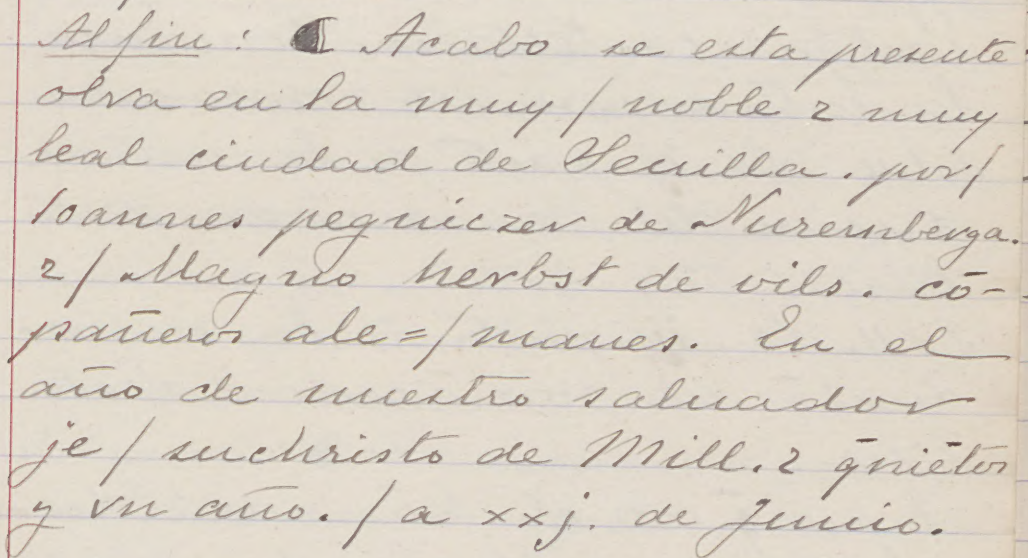 Al fin: ¶ Acabo se esta presente
obra en la muy / noble ⁊ muy
leal ciudad de Seuilla. por /
Ioannes pegniczer de Nuremberga.
⁊ / Magno herbst de vils. cō-
pañeros ale= / manes. En el
año de nuestro saluador
je / suchristo de Mill. ⁊ q̄niētos
y vn año. / a xxj. de Junio.